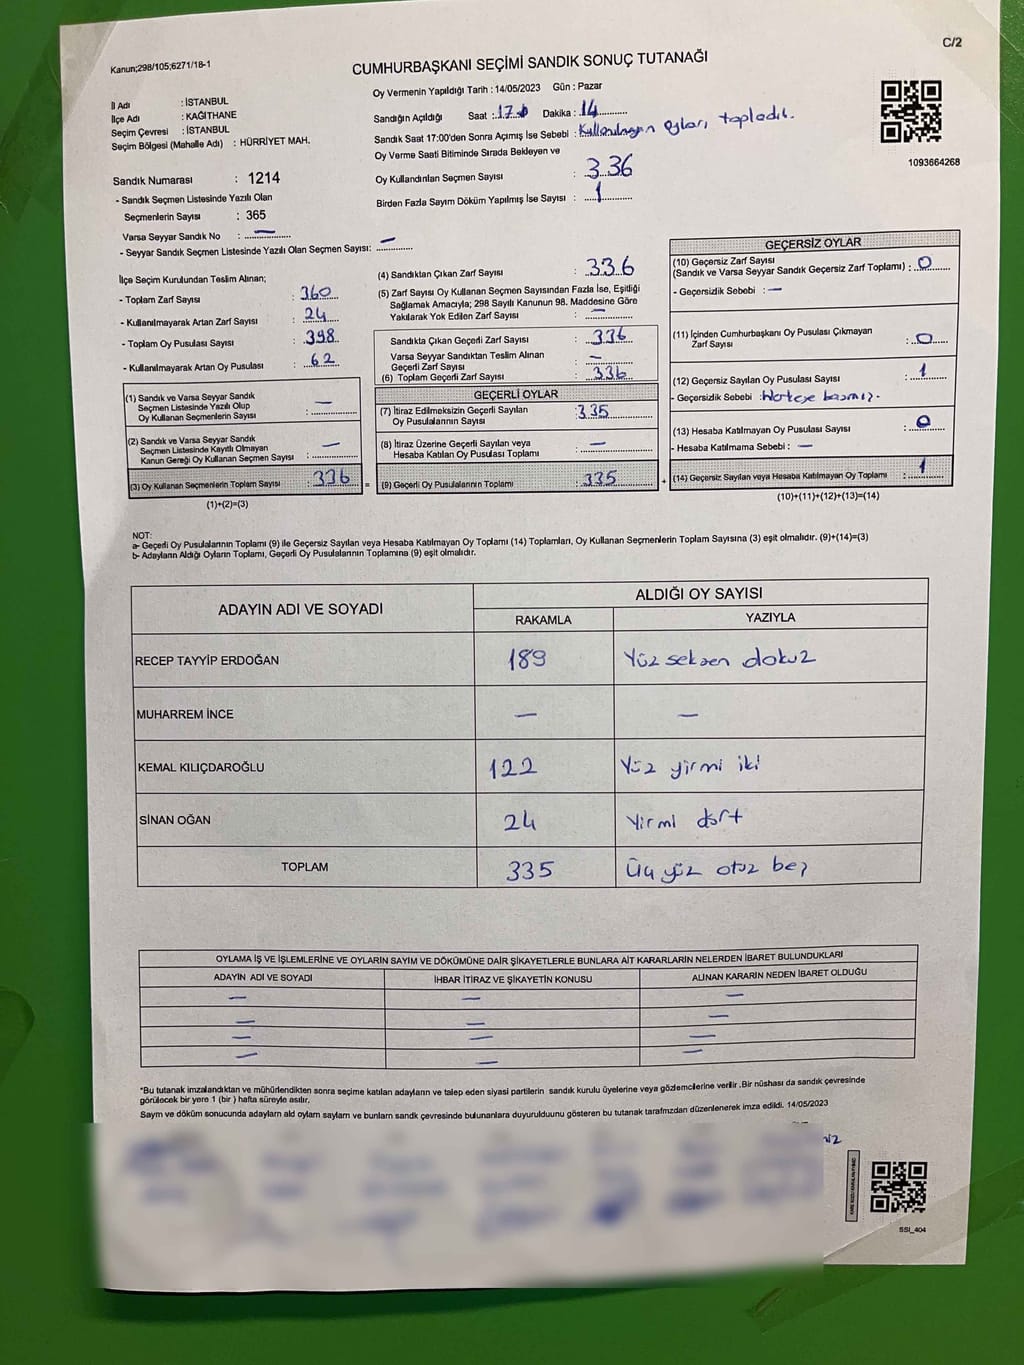 C/2
Kanun;298/105;6271/18-1
CUMHURBAŞKANI SEÇİMİ SANDIK SONUÇ TUTANAĞI
İl Adı : İSTANBUL
İlçe Adı : KAĞITHANE
Seçim Çevresi : İSTANBUL
Seçim Bölgesi (Mahalle Adı) : HÜRRİYET MAH.
Oy Vermenin Yapıldığı Tarih : 14/05/2023 Gün : Pazar
Sandığın Açıldığı Saat : 17 Dakika : 14
Sandık Saat 17:00'den Sonra Açımış İse Sebebi : Kullanılmayan oyları topladık.
Oy Verme Saati Bitiminde Sırada Bekleyen ve
Oy Kullandırılan Seçmen Sayısı : 336
Birden Fazla Sayım Döküm Yapılmış İse Sayısı : 1
1093664268
Sandık Numarası : 1214
- Sandık Seçmen Listesinde Yazılı Olan
Seçmenlerin Sayısı : 365
Varsa Seyyar Sandık No : —
- Seyyar Sandık Seçmen Listesinde Yazılı Olan Seçmen Sayısı: —
İlçe Seçim Kurulundan Teslim Alınan;
- Toplam Zarf Sayısı : 360
- Kullanılmayarak Artan Zarf Sayısı : 24
- Toplam Oy Pusulası Sayısı : 398
- Kullanılmayarak Artan Oy Pusulası : 62
(1) Sandık ve Varsa Seyyar Sandık
Seçmen Listesinde Yazılı Olup
Oy Kullanan Seçmenlerin Sayısı : —
(2) Sandık ve Varsa Seyyar Sandık
Seçmen Listesinde Kayıtlı Olmayan
Kanun Gereği Oy Kullanan Seçmen Sayısı : —
(3) Oy Kullanan Seçmenlerin Toplam Sayısı : 336
(1)+(2)=(3)
=
(4) Sandıktan Çıkan Zarf Sayısı : 336
(5) Zarf Sayısı Oy Kullanan Seçmen Sayısından Fazla İse, Eşitliği
Sağlamak Amacıyla; 298 Sayılı Kanunun 98. Maddesine Göre
Yakılarak Yok Edilen Zarf Sayısı : —
Sandıkta Çıkan Geçerli Zarf Sayısı : 336
Varsa Seyyar Sandıktan Teslim Alınan
Geçerli Zarf Sayısı : —
(6) Toplam Geçerli Zarf Sayısı : 336
GEÇERLİ OYLAR
(7) İtiraz Edilmeksizin Geçerli Sayılan
Oy Pusulasının Sayısı : 335
(8) İtiraz Üzerine Geçerli Sayılan veya
Hesaba Katılan Oy Pusulası Toplamı : —
(9) Geçerli Oy Pusulalarının Toplamı : 335
+
GEÇERSİZ OYLAR
(10) Geçersiz Zarf Sayısı
(Sandık ve Varsa Seyyar Sandık Geçersiz Zarf Toplamı) : 0
- Geçersizlik Sebebi : —
(11) İçinden Cumhurbaşkanı Oy Pusulası Çıkmayan
Zarf Sayısı : 0
(12) Geçersiz Sayılan Oy Pusulası Sayısı : 1
- Geçersizlik Sebebi : Herkese basmış.
(13) Hesaba Katılmayan Oy Pusulası Sayısı : 0
- Hesaba Katılmama Sebebi : —
(14) Geçersiz Sayılan veya Hesaba Katılmayan Oy Toplamı : 1
(10)+(11)+(12)+(13)=(14)
NOT:
a- Geçerli Oy Pusulalarının Toplamı (9) ile Geçersiz Sayılan veya Hesaba Katılmayan Oy Toplamı (14) Toplamları, Oy Kullanan Seçmenlerin Toplam Sayısına (3) eşit olmalıdır. (9)+(14)=(3)
b- Adayların Aldığı Oyların Toplamı, Geçerli Oy Pusulalarının Toplamına (9) eşit olmalıdır.
ADAYIN ADI VE SOYADI
ALDIĞI OY SAYISI
RAKAMLA YAZIYLA
RECEP TAYYİP ERDOĞAN 189 Yüz seksen dokuz
MUHARREM İNCE — —
KEMAL KILIÇDAROĞLU 122 Yüz yirmi iki
SİNAN OĞAN 24 Yirmi dört
TOPLAM 335 Üç yüz otuz beş
OYLAMA İŞ VE İŞLEMLERİNE VE OYLARIN SAYIM VE DÖKÜMÜNE DAİR ŞİKAYETLERLE BUNLARA AİT KARARLARIN NELERDEN İBARET BULUNDUKLARI
ADAYIN ADI VE SOYADI İHBAR İTİRAZ VE ŞİKAYETİN KONUSU ALINAN KARARIN NEDEN İBARET OLDUĞU
— — —
— — —
— — —
— — —
*Bu tutanak imzalandıktan ve mühürlendikten sonra seçime katılan adayların ve talep eden siyasi partilerin sandık kurulu üyelerine veya gözlemcilerine verilir .Bir nüshası da sandık çevresinde
görülecek bir yere 1 (bir ) hafta süreyle asılır.
Sayım ve döküm sonucunda adayların ald oyların sayların ve bunların sandk çevresinde bulunanlara duyurulduunu gösteren bu tutanak tarafmzdan düzenlenerek imza edildi. 14/05/2023
SSI_404